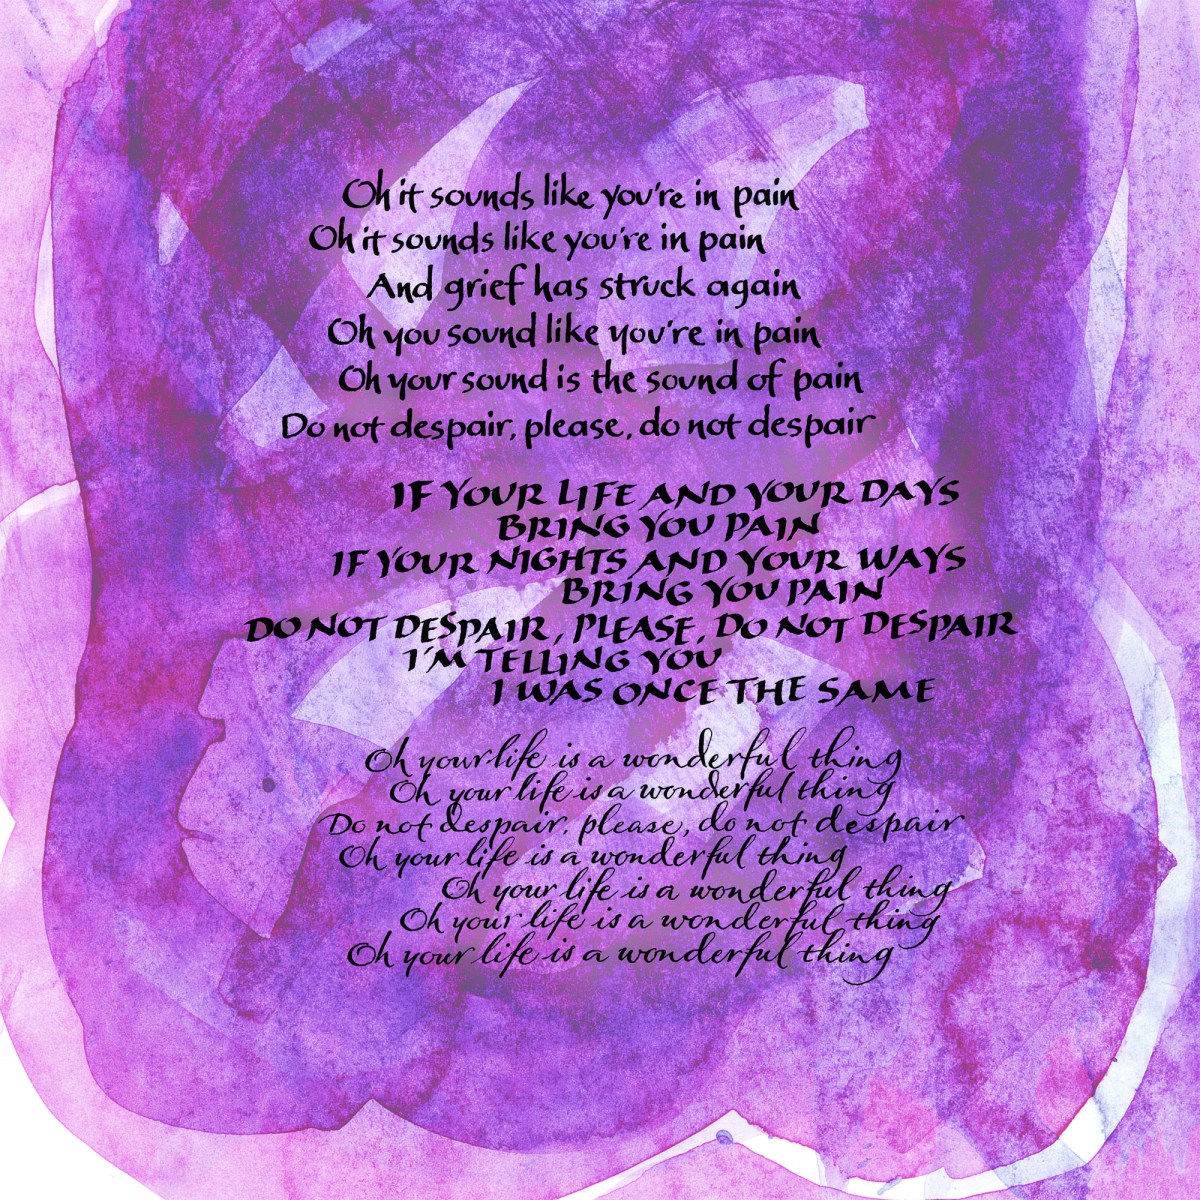 Oh it sounds like you're in pain
Oh it sounds like you're in pain
And grief has struck again
Oh you sound like you're in pain
Oh your sound is the sound of pain
Do not despair, please, do not despair
IF YOUR LIFE AND YOUR DAYS
BRING YOU PAIN
IF YOUR NIGHTS AND YOUR WAYS
BRING YOU PAIN
DO NOT DESPAIR, PLEASE, DO NOT DESPAIR
I'M TELLING YOU
I WAS ONCE THE SAME
Oh your life is a wonderful thing
Oh your life is a wonderful thing
Do not despair, please, do not despair
Oh your life is a wonderful thing
Oh your life is a wonderful thing
Oh your life is a wonderful thing
Oh your life is a wonderful thing